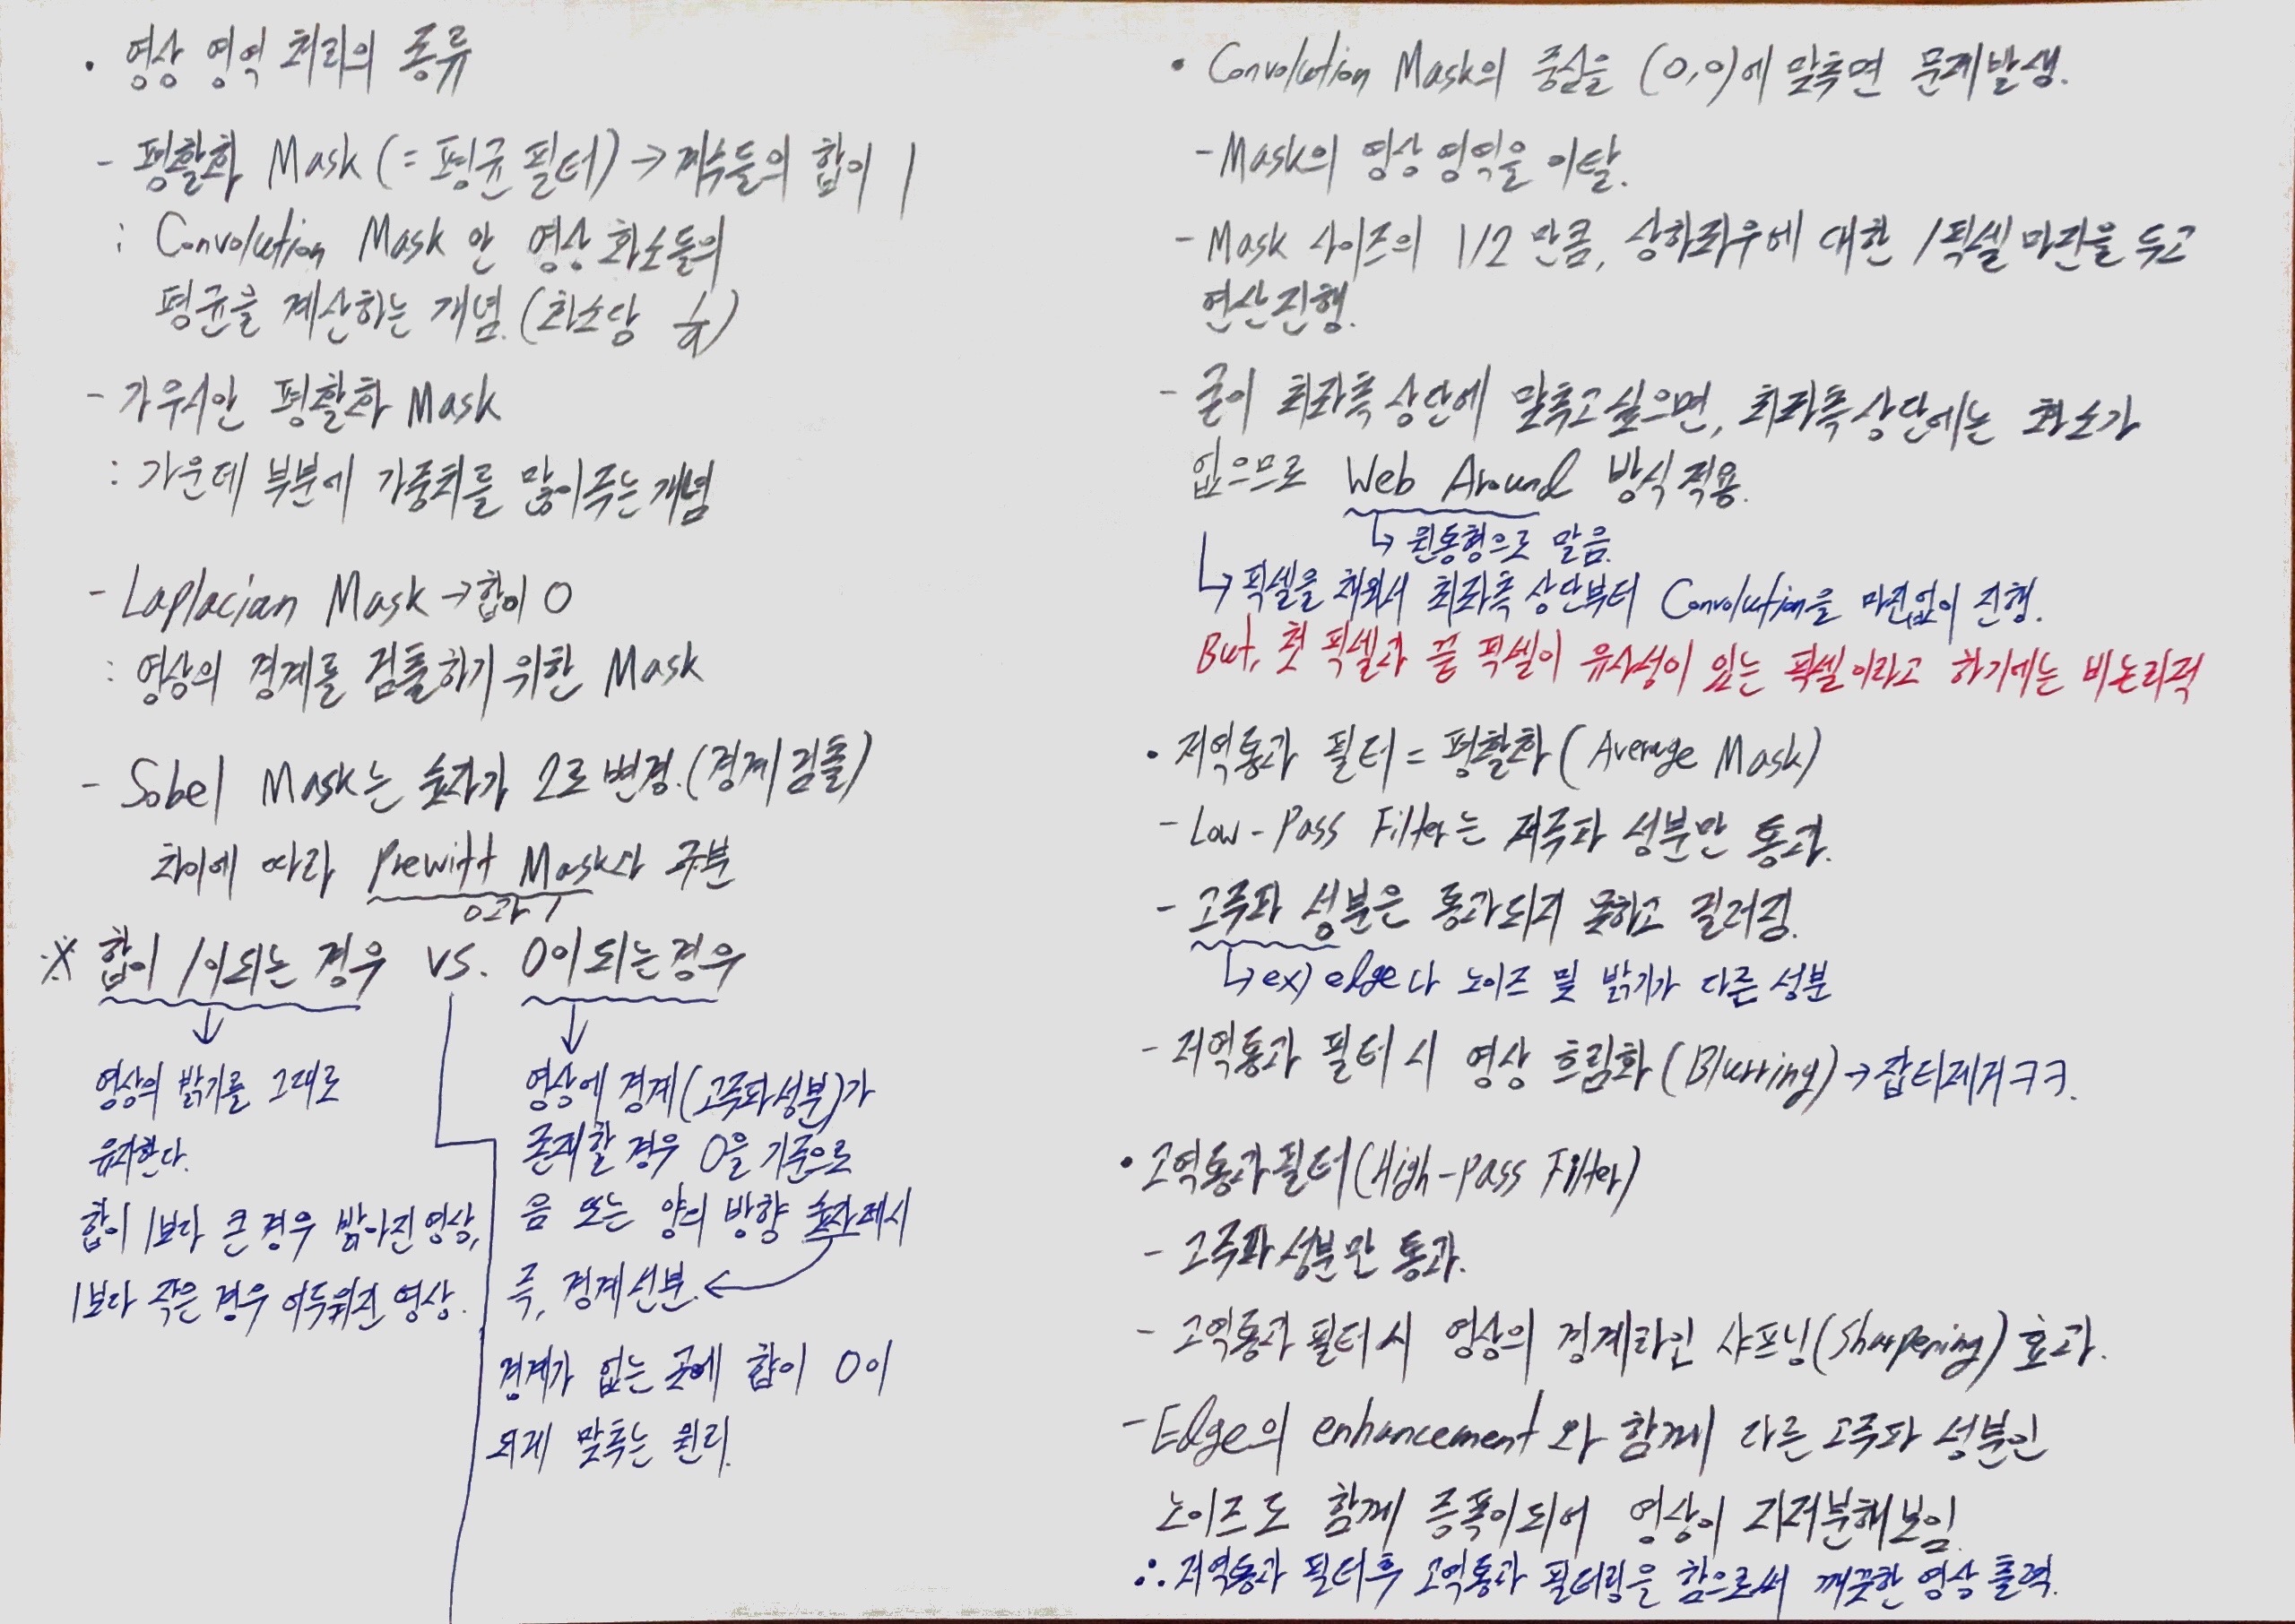 · 영상 영역 처리의 종류
- 평활화 Mask (= 평균 필터) → 계수들의 합이 1
: Convolution Mask 안 영상 화소들의
평균을 계산하는 개념. (화소당 1/9)
- 가우시안 평활화 Mask
: 가운데 부분에 가중치를 많이 주는 개념
- Laplacian Mask → 합이 0
: 영상의 경계를 검출하기 위한 Mask
- Sobel Mask는 숫자가 2로 변경. (경계 검출)
차이에 따라 Prewitt Mask와 구분
0과 1
※ 합이 1이 되는 경우 vs. 0이 되는 경우
영상의 밝기를 그대로
유지한다.
합이 1보다 큰 경우 밝아진 영상,
1보다 작은 경우 어두워진 영상.
영상에 경계(고주파 성분)가
존재할 경우 0을 기준으로
음 또는 양의 방향 숫자 제시
즉, 경계 선분.
경계가 없는 곳에 합이 0이
되게 맞추는 원리.
· Convolution Mask의 중심을 (0,0)에 맞추면 문제 발생.
- Mask의 영상 영역을 이탈.
- Mask 사이즈의 1/2 만큼, 상하좌우에 대한 1픽셀 마진을 두고
연산 진행.
- 굳이 최좌측 상단에 맞추고 싶으면, 최좌측 상단에는 화소가
없으므로 Web Around 방식 적용.
↳ 원통형으로 말음.
↳ 픽셀을 채워서 최좌측 상단부터 Convolution을 마진없이 진행.
But, 첫 픽셀과 끝 픽셀이 유사성이 있는 픽셀이라고 하기에는 비논리적
· 저역통과 필터 = 평활화 (Average Mask)
- Low-Pass Filter는 저주파 성분만 통과.
- 고주파 성분은 통과되지 못하고 걸러짐.
↳ ex) edge나 노이즈 및 밝기가 다른 성분
- 저역통과 필터 시 영상 흐림화 (Blurring) → 잡티제거 ㅋㅋ.
· 고역통과 필터 (High-Pass Filter)
- 고주파 성분만 통과.
- 고역통과 필터 시 영상의 경계라인 샤프닝 (Sharpening) 효과.
- Edge의 enhancement와 함께 다른 고주파 성분인
노이즈도 함께 증폭이 되어 영상이 지저분해 보임.
∴ 저역통과 필터 후 고역통과 필터링을 함으로써 깨끗한 영상 출력.